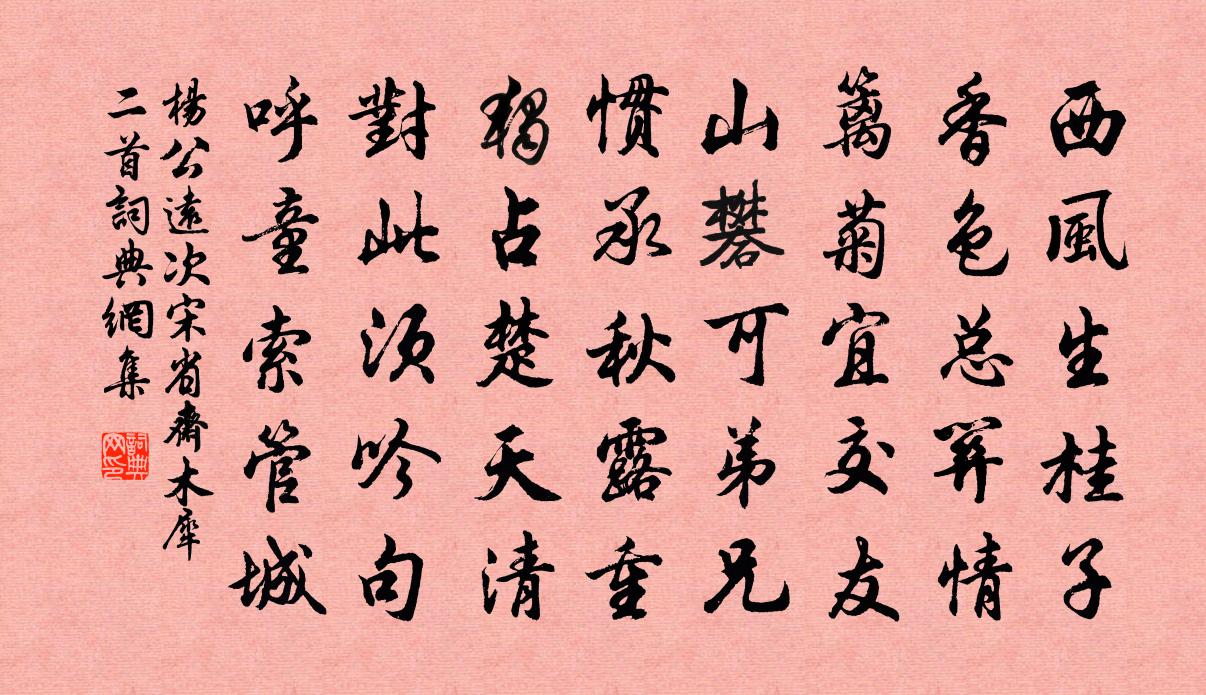 西風生桂子
香色总關情
籬菊宜交友
山礬可弟兄
慣承秋露重
獨占楚天清
對此須吟句
呼童索管城
楊公遠次宋省齋木犀
二首詞典網集
詞典
网印